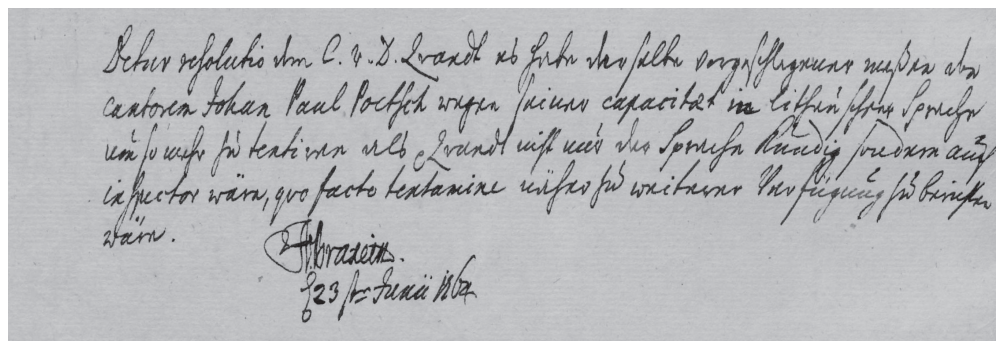 Detur resolutio dem C. v. D. Qvandt es habe derselbe vorgeschlagener maßen den
cantorem Johan Paul Poetsch wegen seiner capacitæt in litthauscher Sprache
um so mehr zu tentiren als Qvandt nicht nur der Sprache kündig sondern auch
inspector wäre, quo facto tentamine näher zu weiterer Verfügung zu berichten
wäre.
23 st Junii